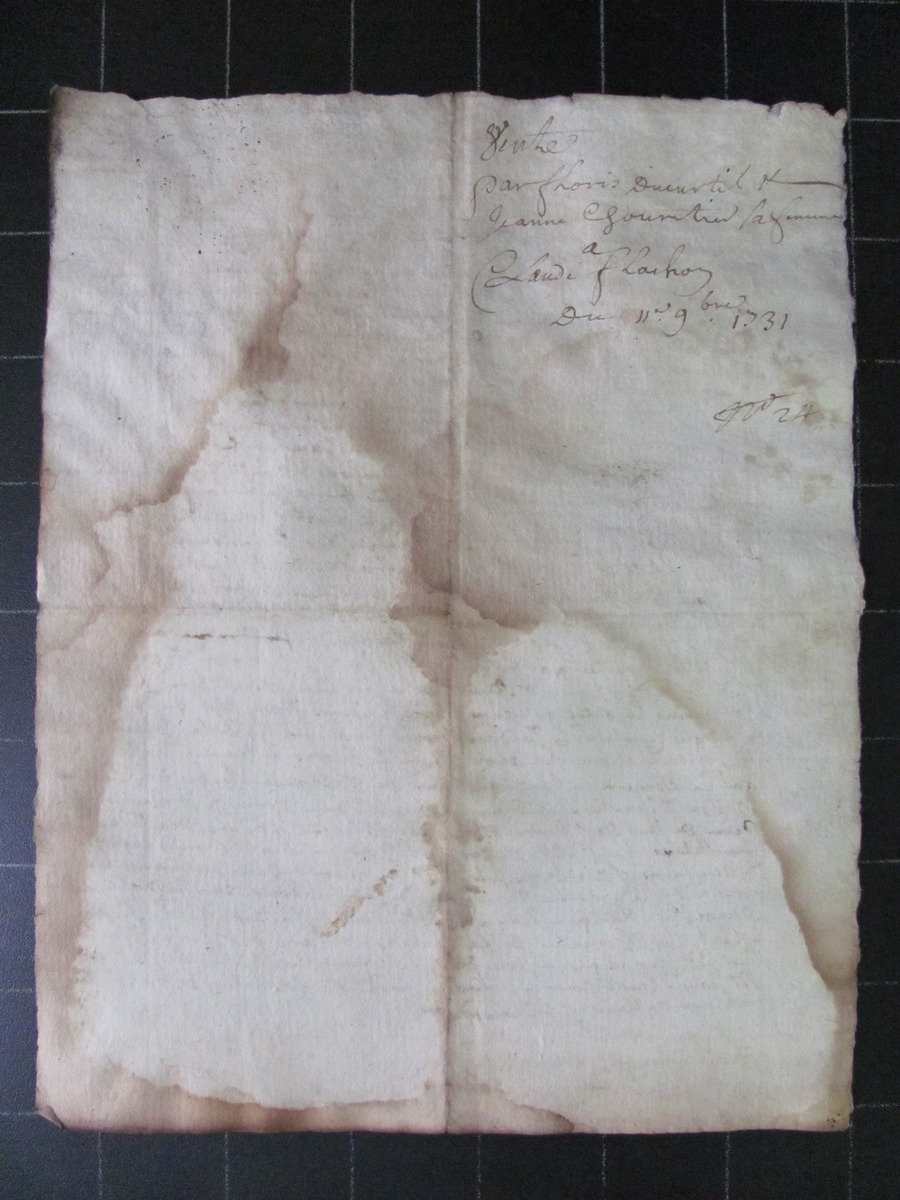 Vente
par floris Ducurtil &
Jeanne Chourtier sa femme
a
Claude flachon
Du 11e 9bre 1731
N° 24